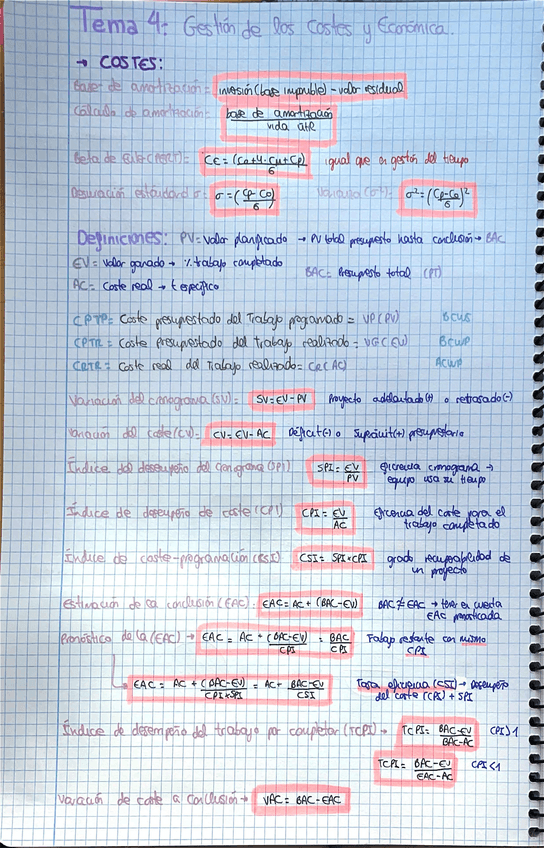 Tema 4: Gestión de los Costes y Económica.
→ COSTES:
Base de amortización = inversión (base imponible) - valor residual
Cálculo de amortización = base de amortización / vida útil
Beta de Euler (PERT): Ce = (Co+4·Cm+Cp) / 6 igual que en gestión del tiempo
Desviación estándar σ = σ = (Cp-Co / 6) Varianza (σ²) = σ² = (Cp-Co / 6)²
Definiciones: PV = Valor planificado → PV total presupuesto hasta conclusión → BAC
EV = Valor ganado → % trabajo completado
BAC = Presupuesto total (PT)
AC = Coste real → t específico
CPTP = Coste presupuestado del Trabajo programado = VP (PV) BCWS
CPTR = Coste Presupuestado del trabajo realizado = VG (EV) BCWP
CRTR = Coste real del Trabajo realizado = CR (AC) ACWP
Variación del cronograma (SV) = SV = EV - PV Proyecto adelantado (+) o retrasado (-)
Variación del coste (CV) = CV = EV - AC Déficit (-) o Superávit (+) presupuestario
Índice del desempeño del cronograma (SPI) SPI = EV / PV eficiencia cronograma →
equipo usa su tiempo
Índice de desempeño de coste (CPI) CPI = EV / AC eficiencia del coste para el
trabajo completado
Índice de coste-programación (CSI) CSI = SPI × CPI grado recuperabilidad de
un proyecto
estimación de la conclusión (EAC): EAC = AC + (BAC - EV) BAC ≠ EAC → tener en cuenta
EAC pronosticada
Pronóstico de la (EAC) → EAC = AC + (BAC-EV) / CPI = BAC / CPI Trabajo restante con mismo
CPI
EAC = AC + (BAC-EV) / CPI×SPI = AC + BAC-EV / CSI Tasa eficiencia (CSI) → Desempeño
del coste (CPI) + SPI
Índice de desempeño del trabajo por completar (TCPI) → TCPI = BAC-EV / BAC-AC CPI>1
TCPI = BAC-EV / EAC-AC CPI<1
Variación de coste a conclusión → VAC = BAC - EAC